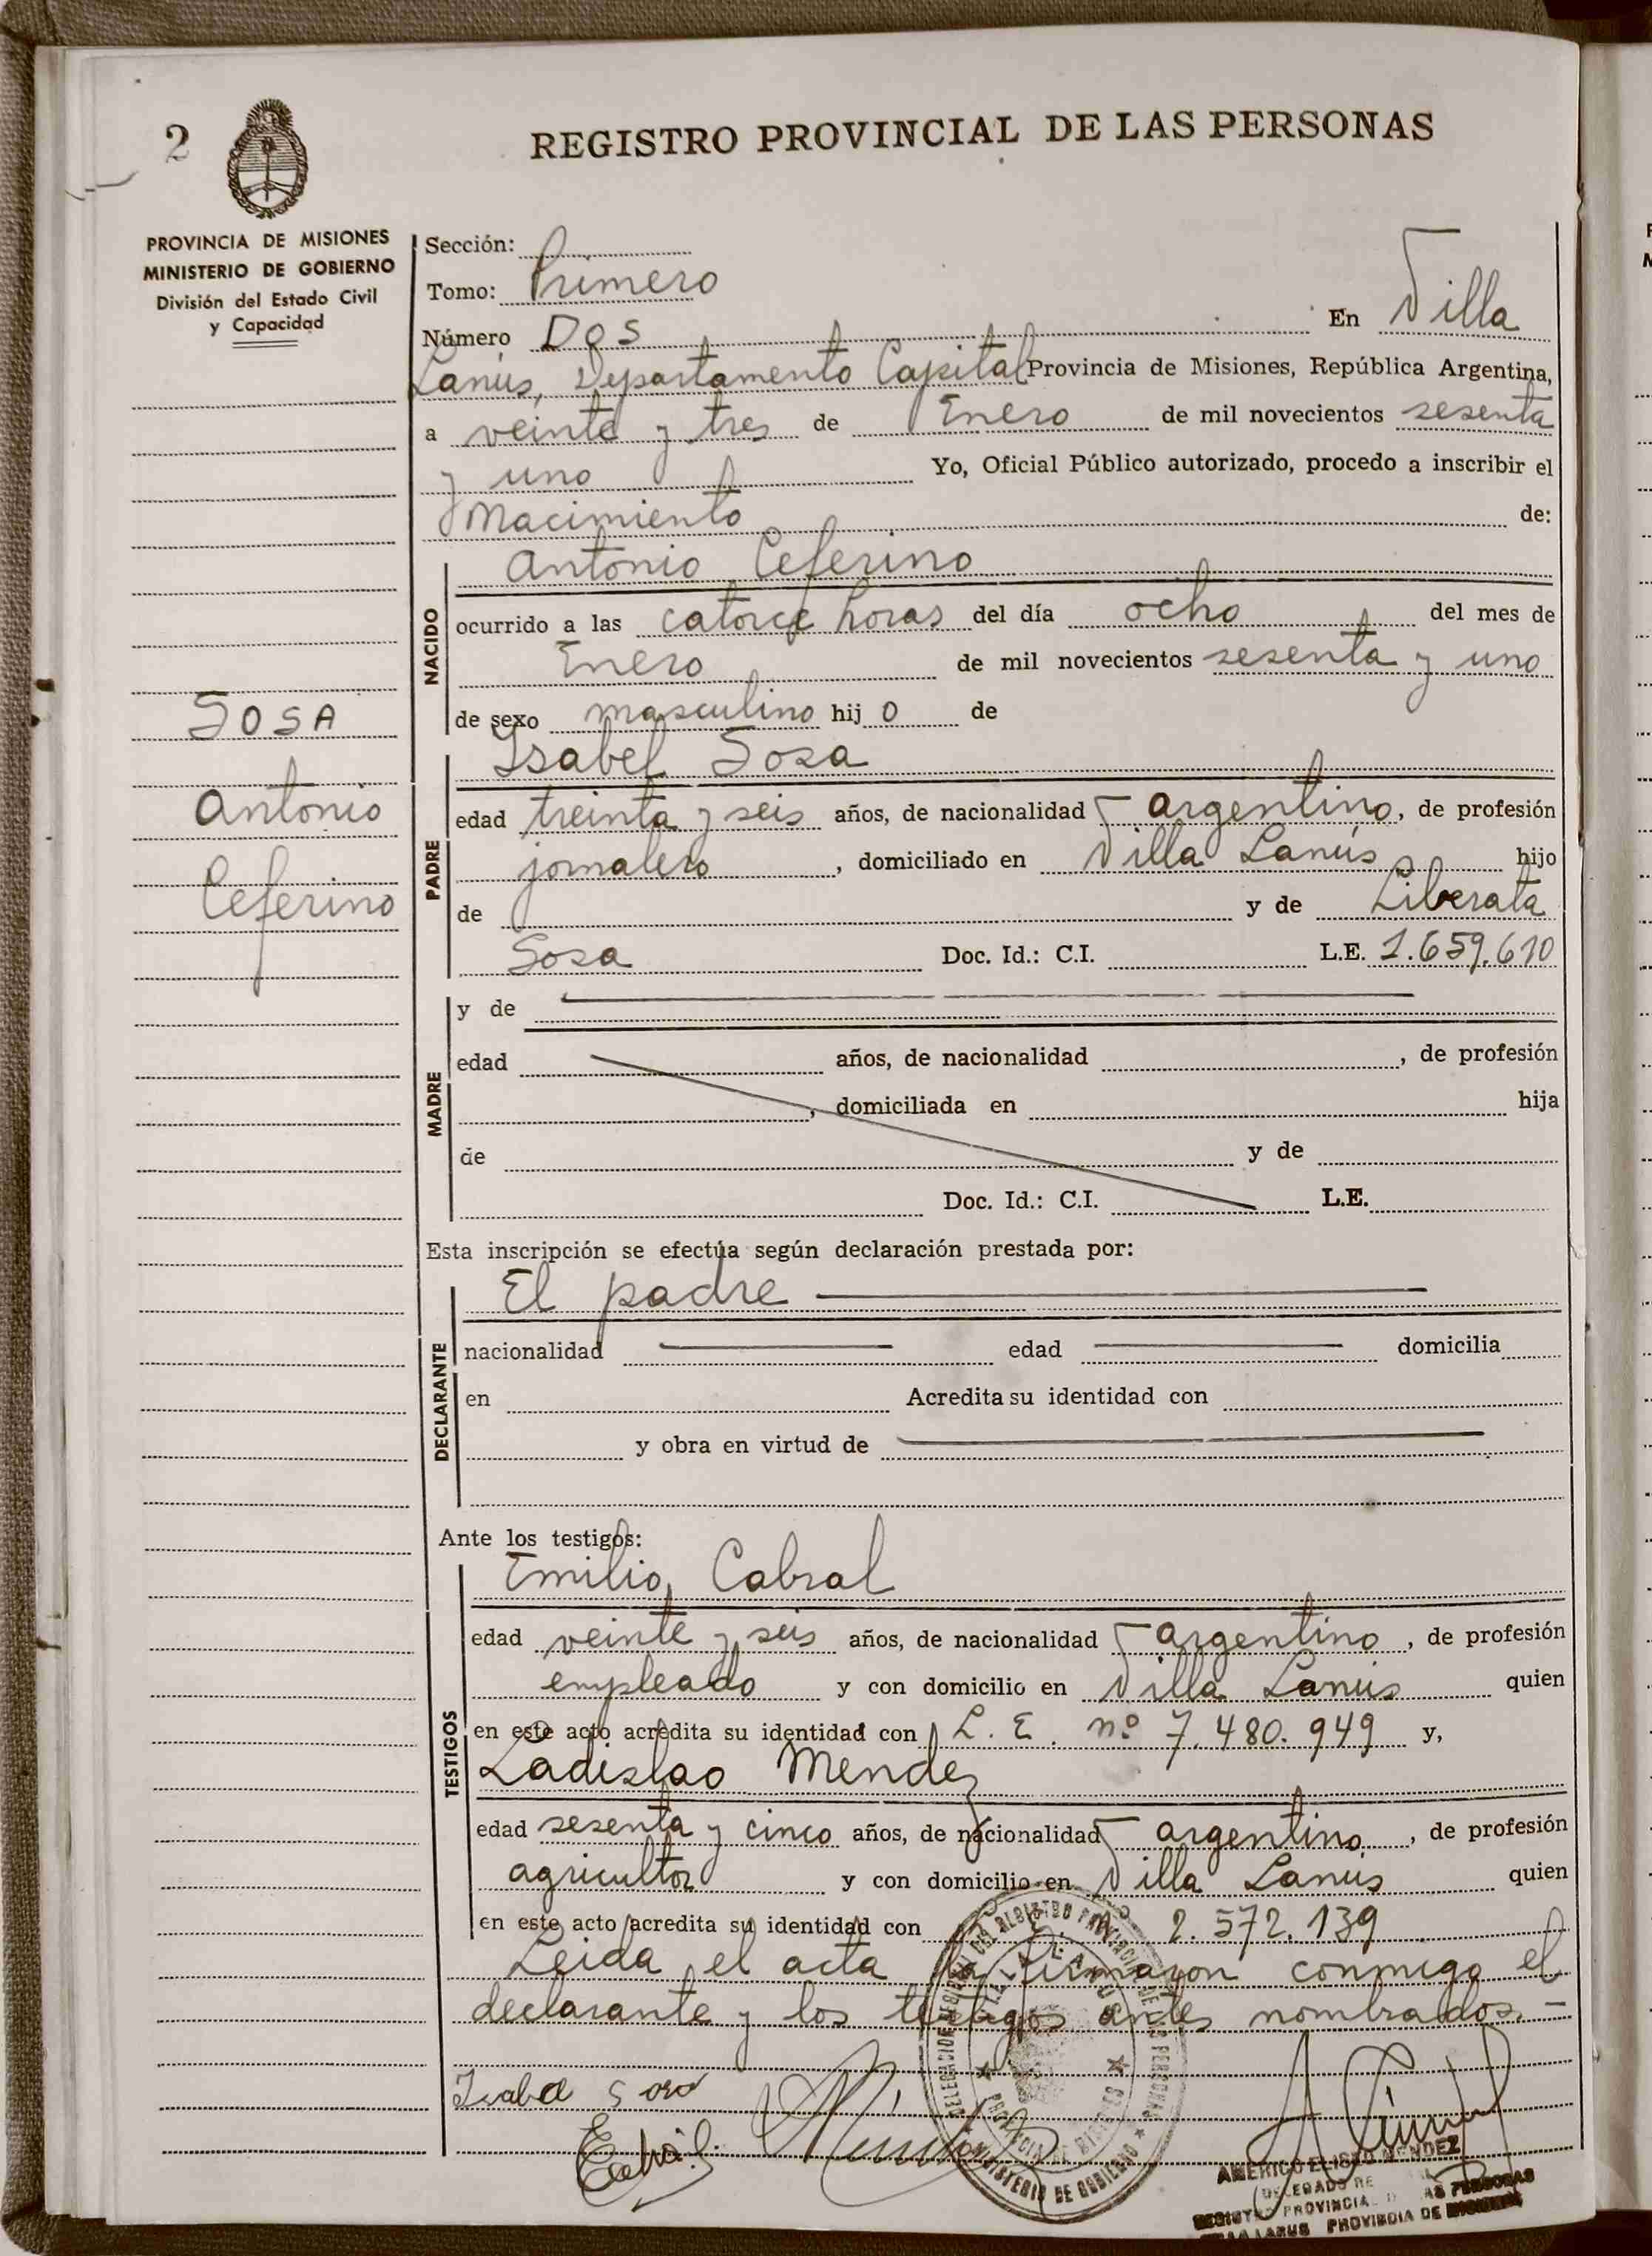 2
REGISTRO PROVINCIAL DE LAS PERSONAS
PROVINCIA DE MISIONES
MINISTERIO DE GOBIERNO
División del Estado Civil
y Capacidad
Sección:
Tomo: Primero
Número Dos En Villa
Lanús, Departamento Capital Provincia de Misiones, República Argentina,
a veinte y tres de Enero de mil novecientos sesenta
y uno Yo, Oficial Público autorizado, procedo a inscribir el
Nacimiento de:
Antonio Ceferino
NACIDO
ocurrido a las catorce horas del día ocho del mes de
Enero de mil novecientos sesenta y uno
de sexo masculino hij o de
SOSA
Antonio
Ceferino
Isabel Sosa
PADRE
edad treinta y seis años, de nacionalidad argentino, de profesión
jornalero, domiciliado en Villa Lanús hijo
de y de Liberata
Sosa Doc. Id.: C.I. L.E. 1.659.610
MADRE
y de
edad años, de nacionalidad , de profesión
, domiciliada en hija
de y de
Doc. Id.: C.I. L.E.
Esta inscripción se efectúa según declaración prestada por:
DECLARANTE
El padre
nacionalidad edad domicilia
en Acredita su identidad con
y obra en virtud de
Ante los testigos:
TESTIGOS
Emilio Cabral
edad veinte y seis años, de nacionalidad argentino, de profesión
empleado y con domicilio en Villa Lanús quien
en este acto acredita su identidad con L. E. nº 7.480.949 y,
Ladislao Mendez
edad sesenta y cinco años, de nacionalidad argentino, de profesión
agricultor y con domicilio en Villa Lanús quien
en este acto acredita su identidad con 2.572.139
Leida el acta la firmaron conmigo el
declarante y los testigos antes nombrados.-
Isabel Sosa
AMERICO ELISEO MENDEZ
DELEGADO
REGISTRO PROVINCIAL DE LAS PERSONAS
VILLA LANUS PROVINCIA DE MISIONES
DELEGACION DEL REGISTRO PROVINCIAL DE LAS PERSONAS
VILLA LANUS
PROVINCIA DE MISIONES
MINISTERIO DE GOBIERNO